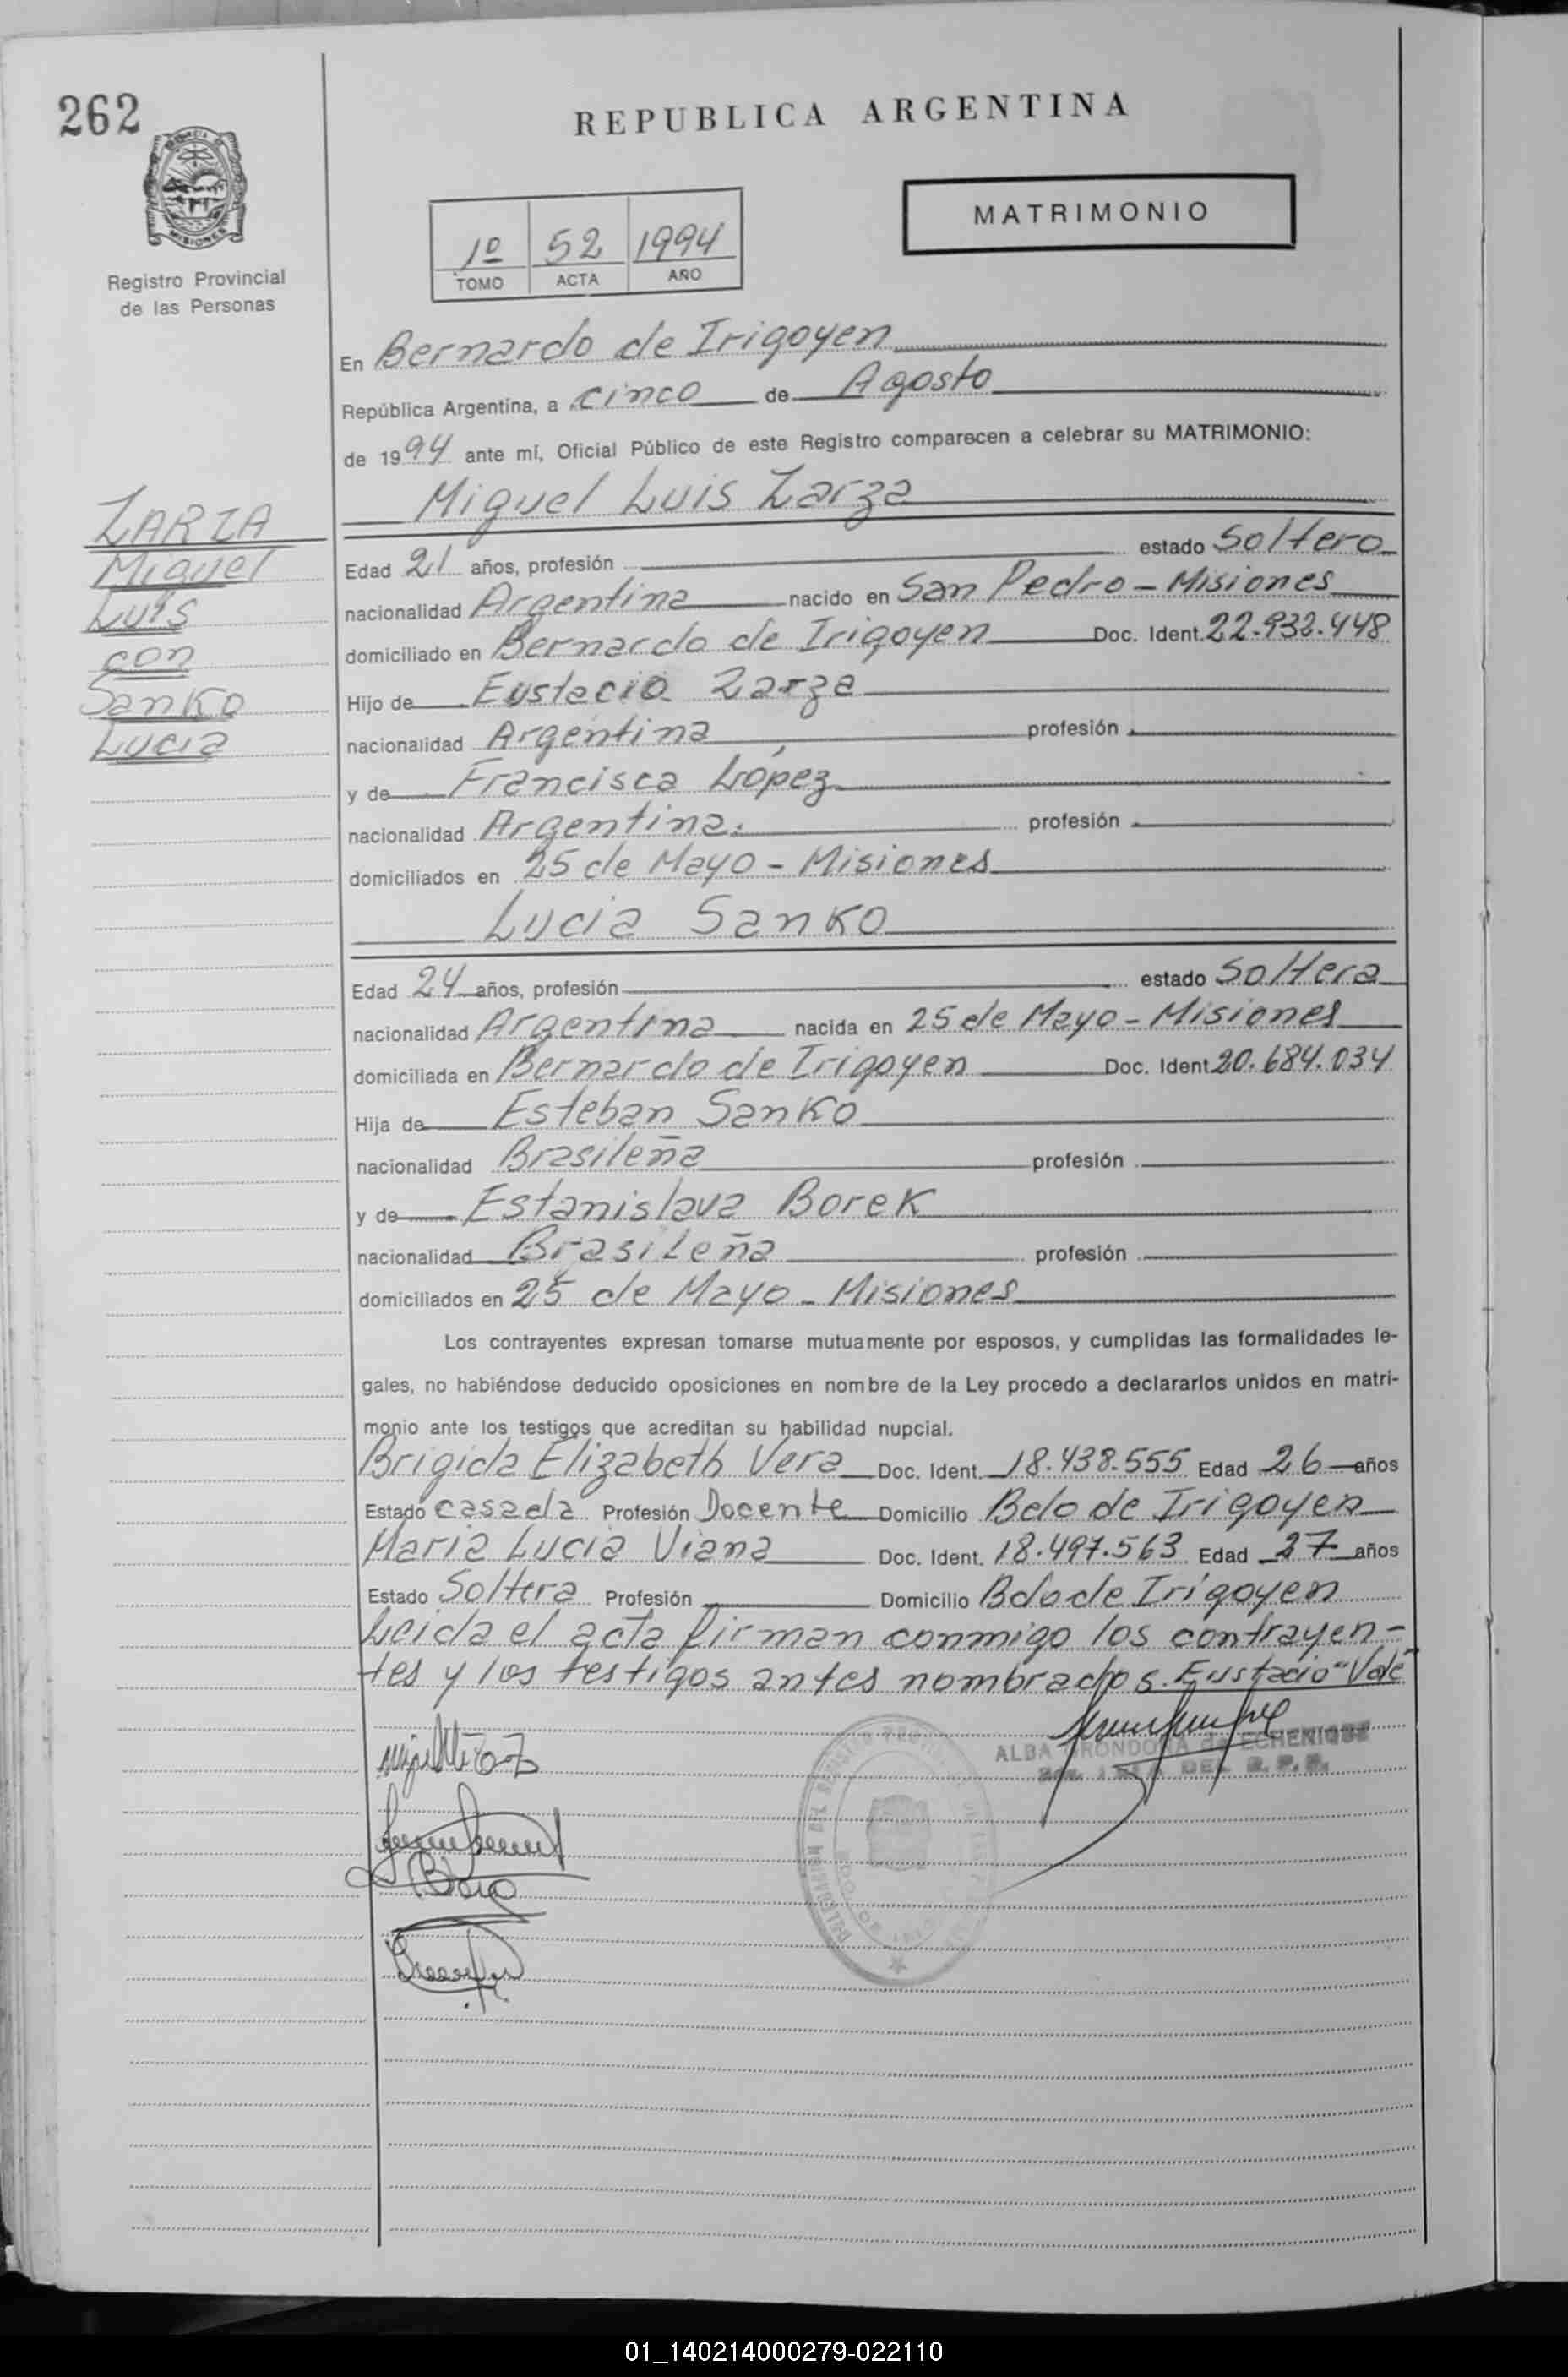 262
REPUBLICA ARGENTINA
MISIONES
Registro Provincial
de las Personas
1º 52 1994
TOMO ACTA AÑO
MATRIMONIO
En Bernardo de Irigoyen
República Argentina, a cinco de Agosto
de 1994 ante mí, Oficial Público de este Registro comparecen a celebrar su MATRIMONIO:
Miguel Luis Zarza
ZARZA
Miguel
Luis
con
Sanko
Lucia
Edad 21 años, profesión estado Soltero
nacionalidad Argentina nacido en San Pedro - Misiones
domiciliado en Bernardo de Irigoyen Doc. Ident. 22.932.448
Hijo de Eustacio Zarza
nacionalidad Argentina profesión
y de Francisca López
nacionalidad Argentina. profesión
domiciliados en 25 de Mayo - Misiones
Lucia Sanko
Edad 24 años, profesión estado Soltera
nacionalidad Argentina nacida en 25 de Mayo - Misiones
domiciliada en Bernardo de Irigoyen Doc. Ident 20.684.034
Hija de Esteban Sanko
nacionalidad Brasileña profesión
y de Estanislava Borek
nacionalidad Brasileña profesión
domiciliados en 25 de Mayo - Misiones
Los contrayentes expresan tomarse mutuamente por esposos, y cumplidas las formalidades le-
gales, no habiéndose deducido oposiciones en nombre de la Ley procedo a declararlos unidos en matri-
monio ante los testigos que acreditan su habilidad nupcial.
Brigida Elizabeth Vera Doc. Ident. 18.438.555 Edad 26 años
Estado casada Profesión Docente Domicilio Bdo de Irigoyen
Maria Lucia Viana Doc. Ident. 18.497.563 Edad 27 años
Estado Soltera Profesión Domicilio Bdo de Irigoyen
Leida el acta firman conmigo los contrayen-
tes y los testigos antes nombrados. Eustacio "Vale"
ALBA de ECHENIQUE
DEL R.P.P.
01_140214000279-022110